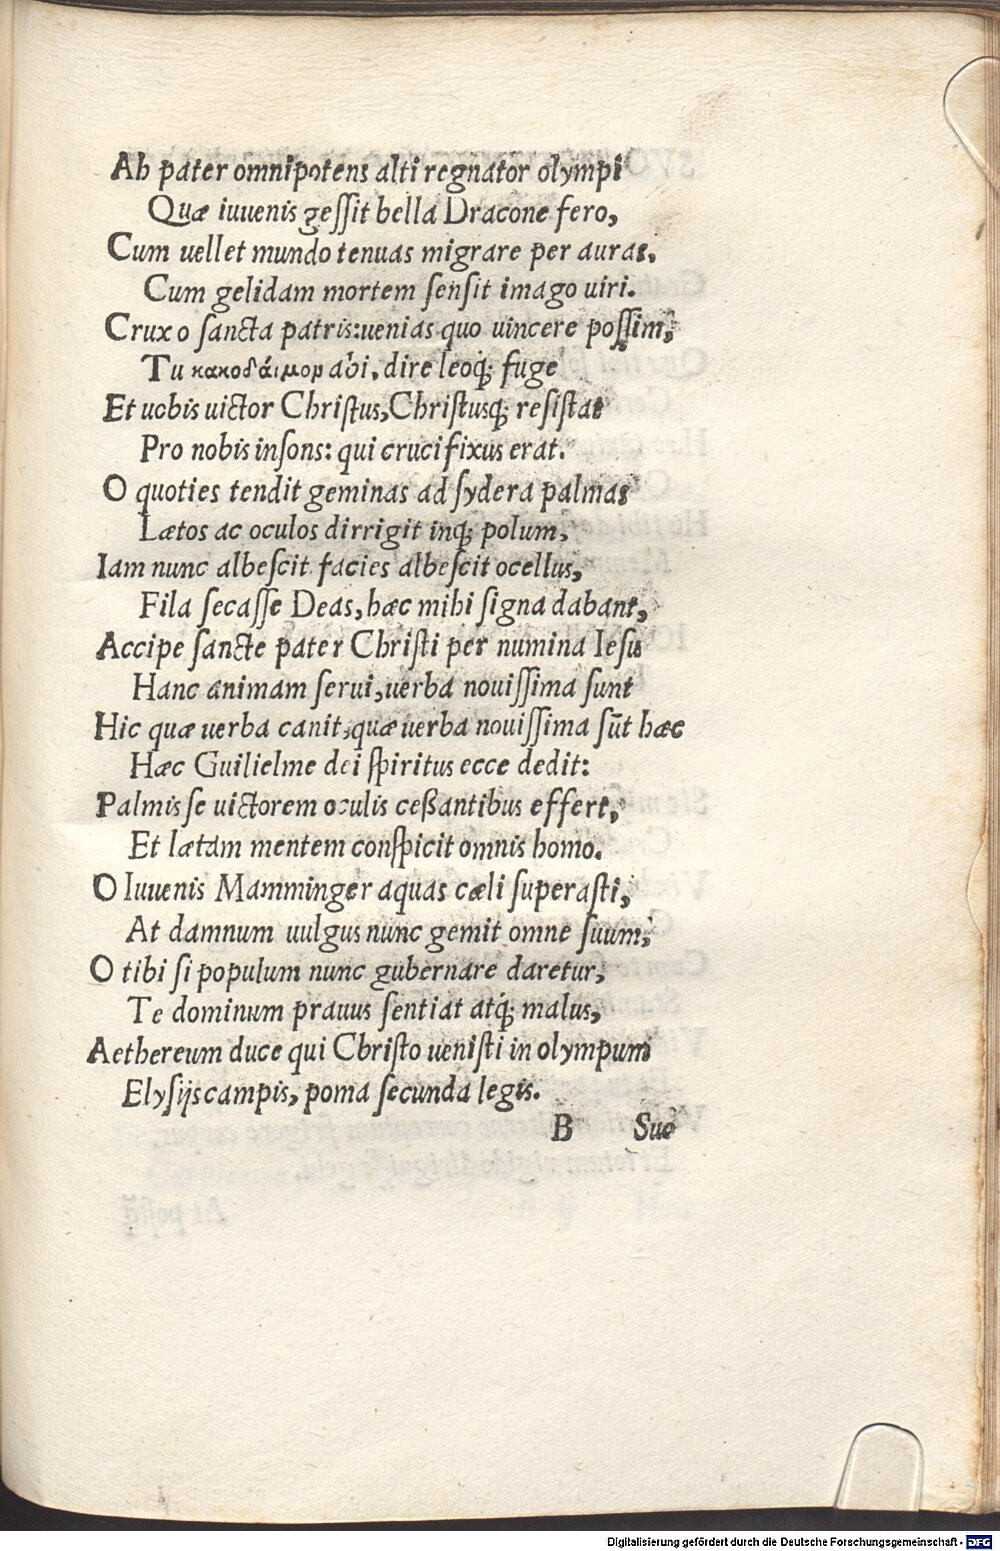 Ah pater omnipotens alti regnator olympi
Quæ iuuenis geſſit bella Dracone fero,
Cum uellet mundo tenuas migrare per auras,
Cum gelidam mortem ſenſit imago uiri.
Crux o ſancta patris:uenias quo uincere poſſim,
Tu κακοδάιμορ abi, dire leoq; fuge
Et uobis uictor Chriſtus,Chriſtusq; reſiſtat
Pro nobis inſons: qui crucifixus erat.
O quoties tendit geminas ad ſydera palmas
Lætos ac oculos dirrigit inq; polum,
Iam nunc albeſcit facies albeſcit ocellus,
Fila ſecaſſe Deas, hæc mihi ſigna dabant,
Accipe ſancte pater Chriſti per numina Ieſu
Hanc animam serui, uerba nouiſſima ſunt
Hic quæ uerba canit, quæ uerba nouiſſima ſūt hæc
Hæc Guilielme dei ſpiritus ecce dedit:
Palmis ſe uictorem oculis ceßantibus effert,
Et lætam mentem conſpicit omnis homo.
O Iuuenis Mamminger aquas cæli ſuperaſti,
At damnum uulgus nunc gemit omne ſuum,
O tibi ſi populum nunc gubernare daretur,
Te dominum prauus ſentiat atq; malus,
Aethereum duce qui Chriſto ueniſti in olympum
Elyſijs campis, poma ſecunda legis.
B Sue
Digitalisierung gefördert durch die Deutsche Forschungsgemeinschaft - DFG